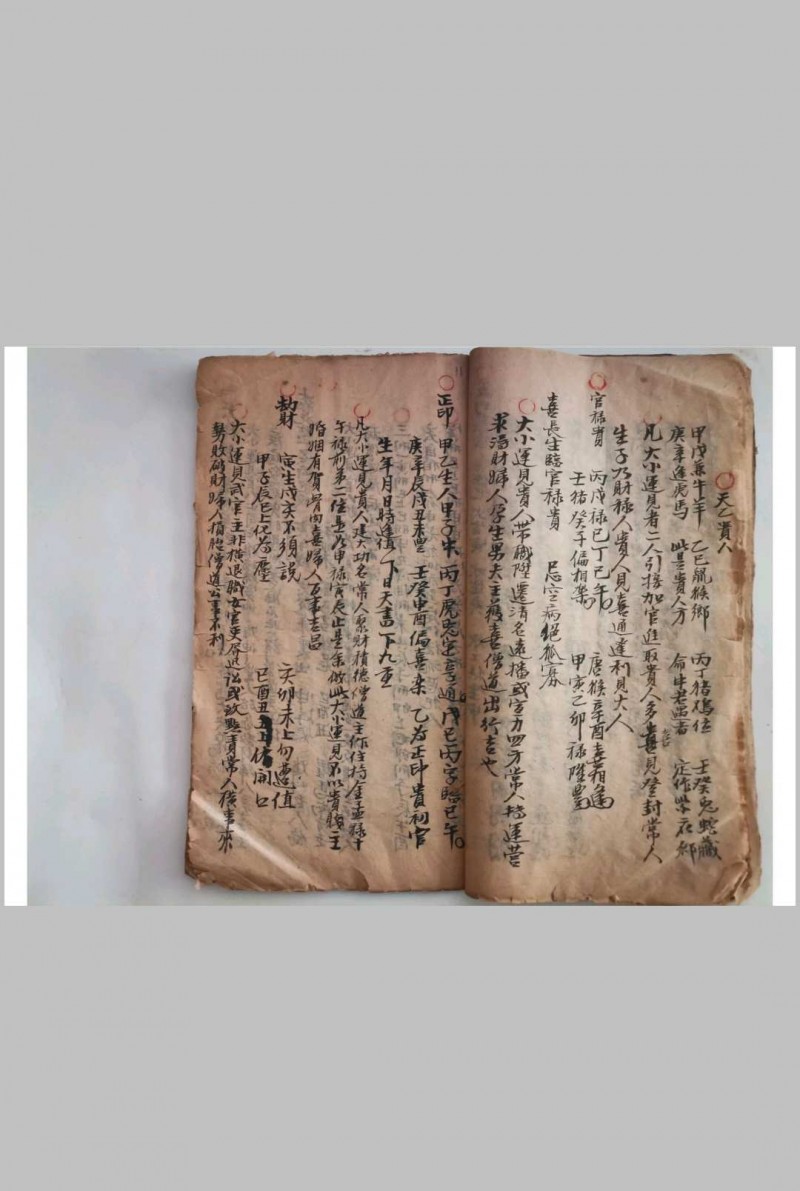 天乙貴人
甲戊兼牛羊 乙己鼠猴鄉 丙丁猪鸡位 壬癸兔蛇藏
庚辛逢虎馬 此是貴人方 命中若遇者 定作紫衣郎
凡大小運見者二人引接加官進取貴人多喜見登封常人
生子乃財禄人貴人見喜通達利見大人
官禄貴 丙戊禄巳丁己午 庚猴辛酉喜相逢
壬猪癸子偏相樂 甲寅乙卯禄隆豊
喜長生臨官禄貴 忌空病絕孤寡
大小運見貴人帶職陞遷清名遠播或官力四方常人轉運營
求得財婦人孕生男夫主獲喜僧道出行吉也
正印 甲乙生人甲子牛 丙丁虎兔定亨通 戊己丙字臨巳午
庚辛辰戌丑未豐 壬癸申酉偏喜樂 乙為正印貴初官
生年月日時逢值 下日天書下九重
凡大小運見貴人建大功名常人聚財積德僧道主作住持金孟録十
午禄前第二位是也甲禄寅辰止是余倣此大小運見不以貴賤主
婚姻有賀骨肉喜婦人百事吉昌
劫財 寅生戌亥不須說 亥卯未上勿遭值
甲子辰巳上便為壓 巳酉丑 猪開口
大小運見武官主非横退職文官吏屏退訟或政點責常人横事來
勢敗破財婦人損胎僧道公事不利